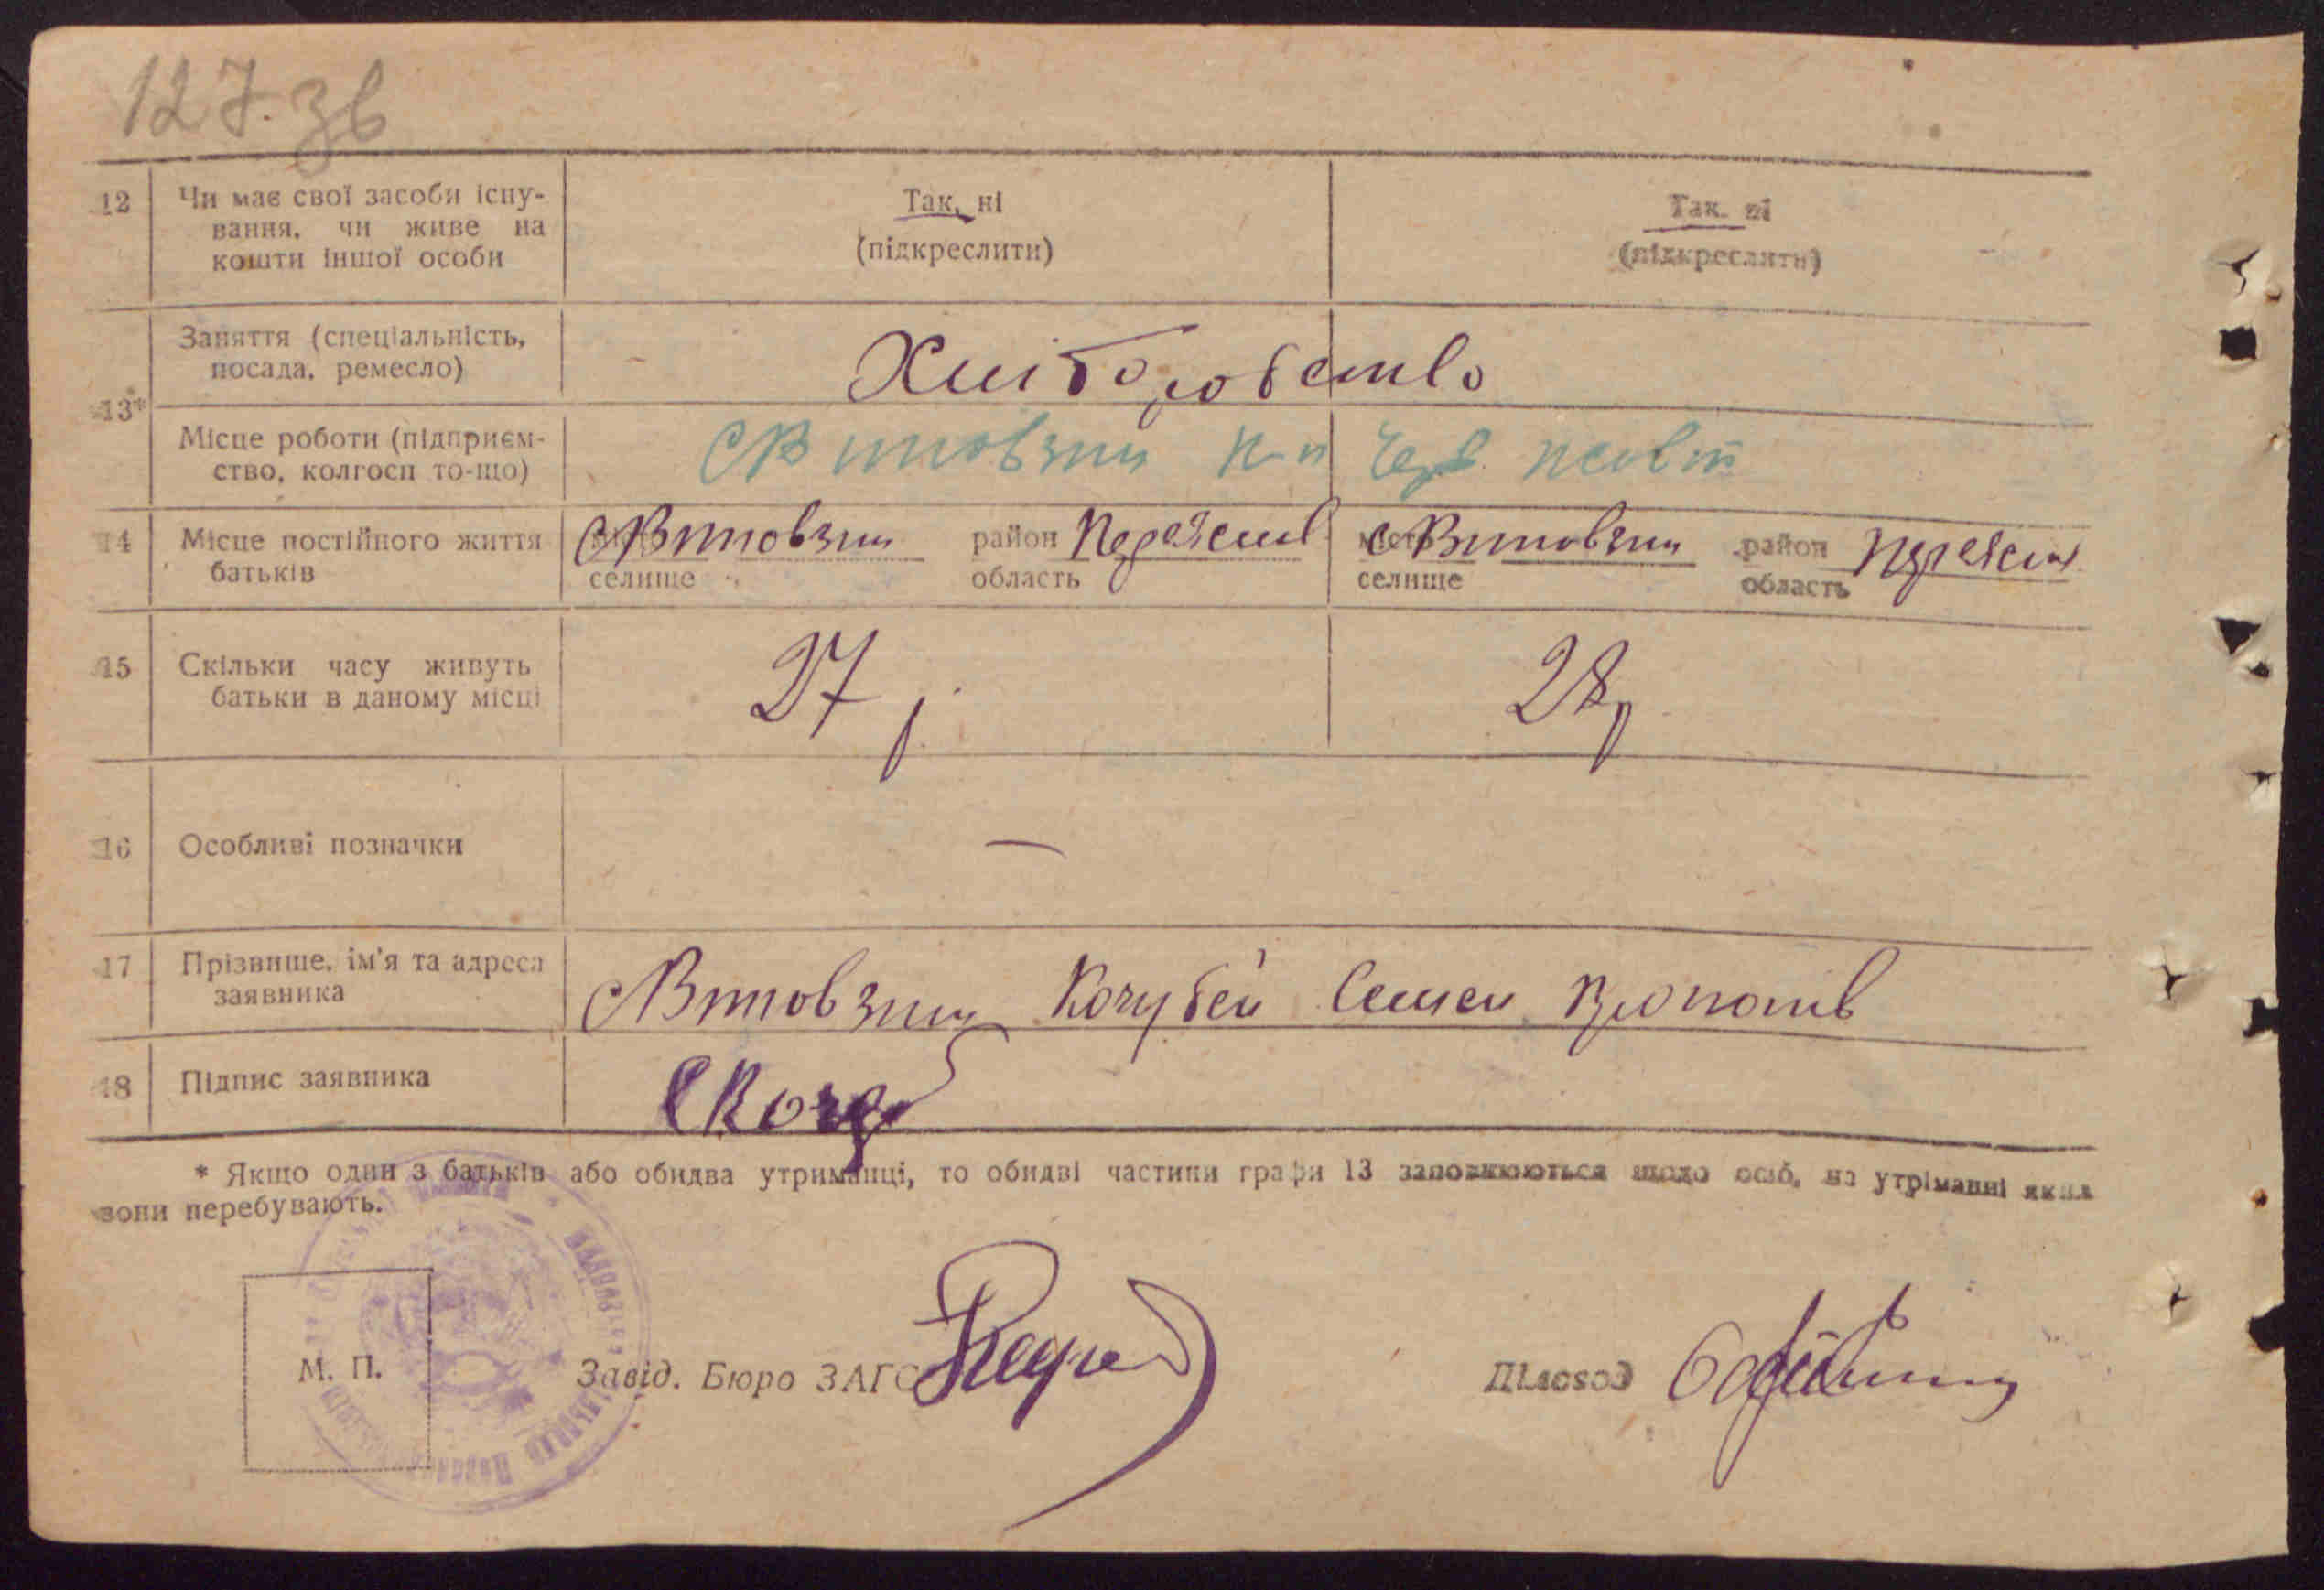 127.зв
12 Чи має свої засоби існу- Так, ні Так, ні
вання, чи живе на (підкреслити) (підкреслити)
кошти іншої особи
13* Заняття (спеціальність, Хліборобство
посада, ремесло)
Місце роботи (підприєм- с Втовзин к-п Черв
ство, колгосп то-що)
14 Місце постійного життя с Втовзин район Переясл місто с Втовзин район Переясл
батьків селище область селище область
15 Скільки часу живуть 27 р. 28 р
батьки в даному місці
16 Особливі позначки —
17 Прізвише, ім'я та адреса с Втовзин Кочубей Семен
заявника
18 Підпис заявника СКочуб
* Якщо один з батьків або обидва утриманці, то обидві частини графи 13 заповнюються щодо осіб, на утріманні яких
вони перебувають.
М. П. Завід. Бюро ЗАГС Діловод